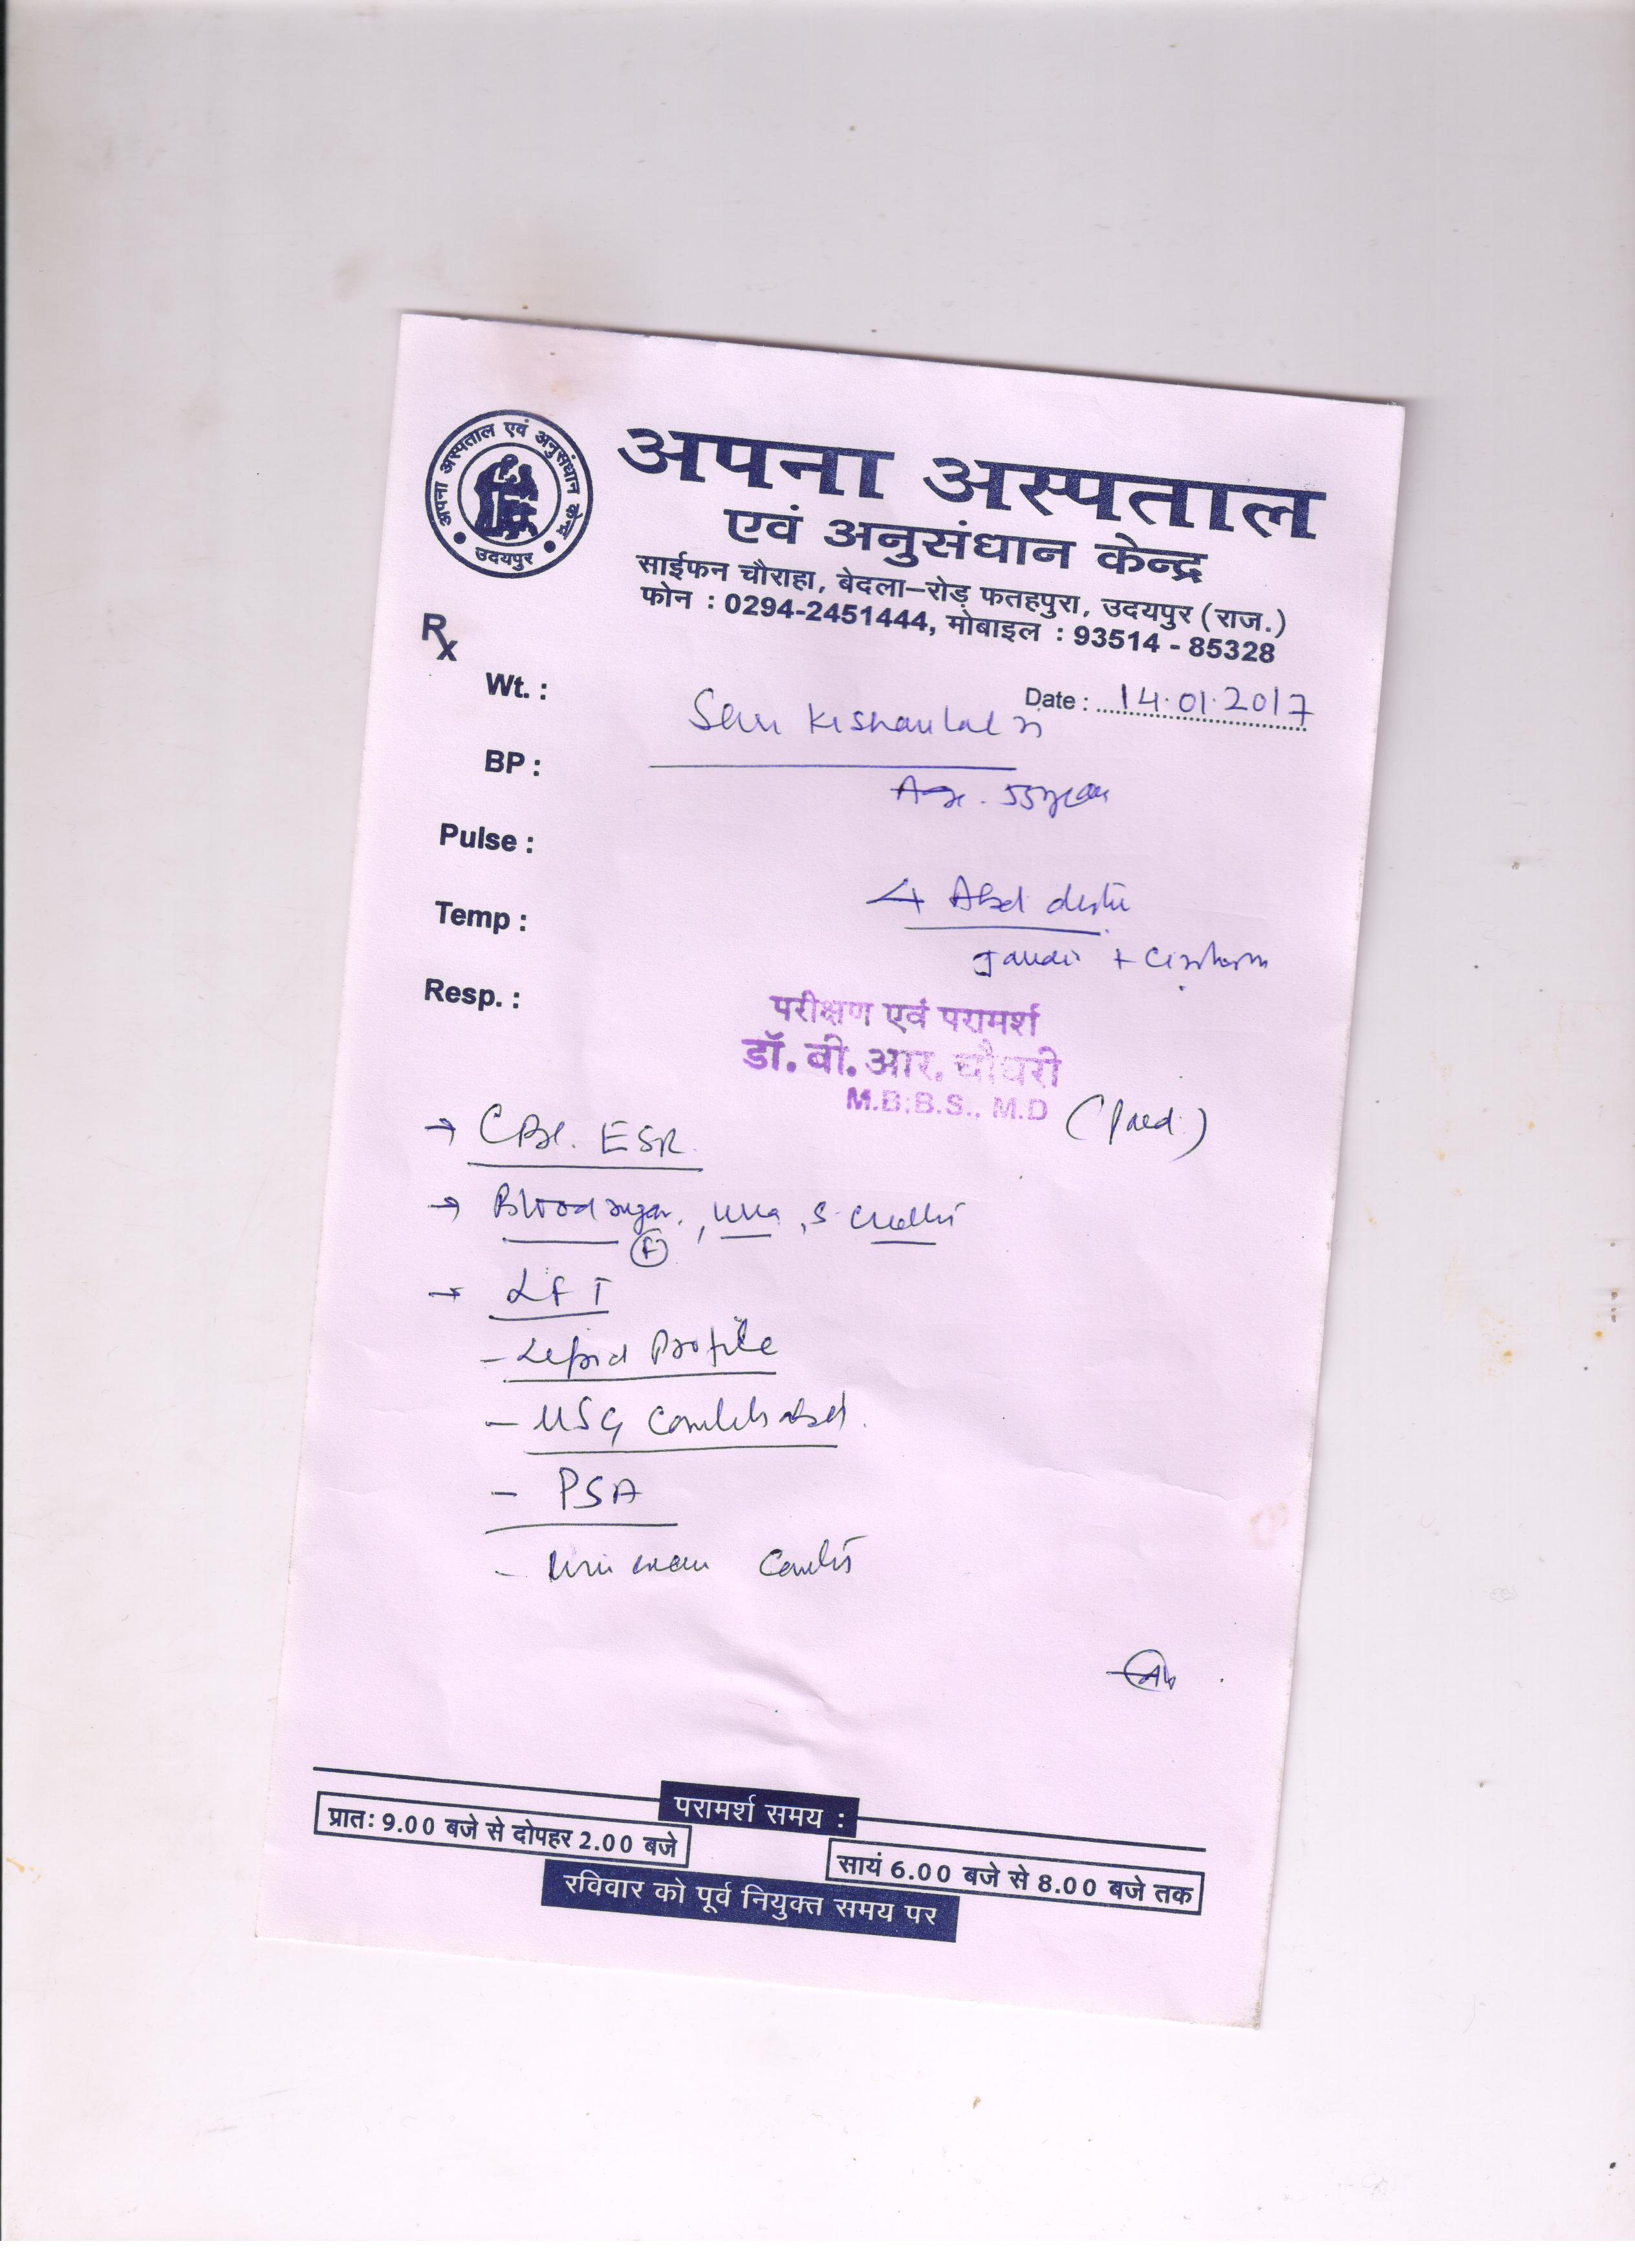 अपना अस्पताल एवं अनुसंधान केन्द्र
उदयपुर
अपना अस्पताल
एवं अनुसंधान केन्द्र
साईफन चौराहा, बेदला-रोड़ फतहपुरा, उदयपुर (राज.)
फोन : 0294-2451444, मोबाइल : 93514 - 85328
Rx
Wt. :
Date : 14.01.2017
Kishanlal
BP :
Age. 55 year
Pulse :
Abd
Temp :
Resp. :
परीक्षण एवं परामर्श
डॉ. बी. आर. चौधरी
M.B.B.S., M.D
(Paed.)
→ CBC. ESR.
→ Blood sugar, (F) , Urea , S.
→ LFT
- Lipid Profile
- USG abd.
- PSA
-
परामर्श समय :
प्रातः 9.00 बजे से दोपहर 2.00 बजे
सायं 6.00 बजे से 8.00 बजे तक
रविवार को पूर्व नियुक्त समय पर